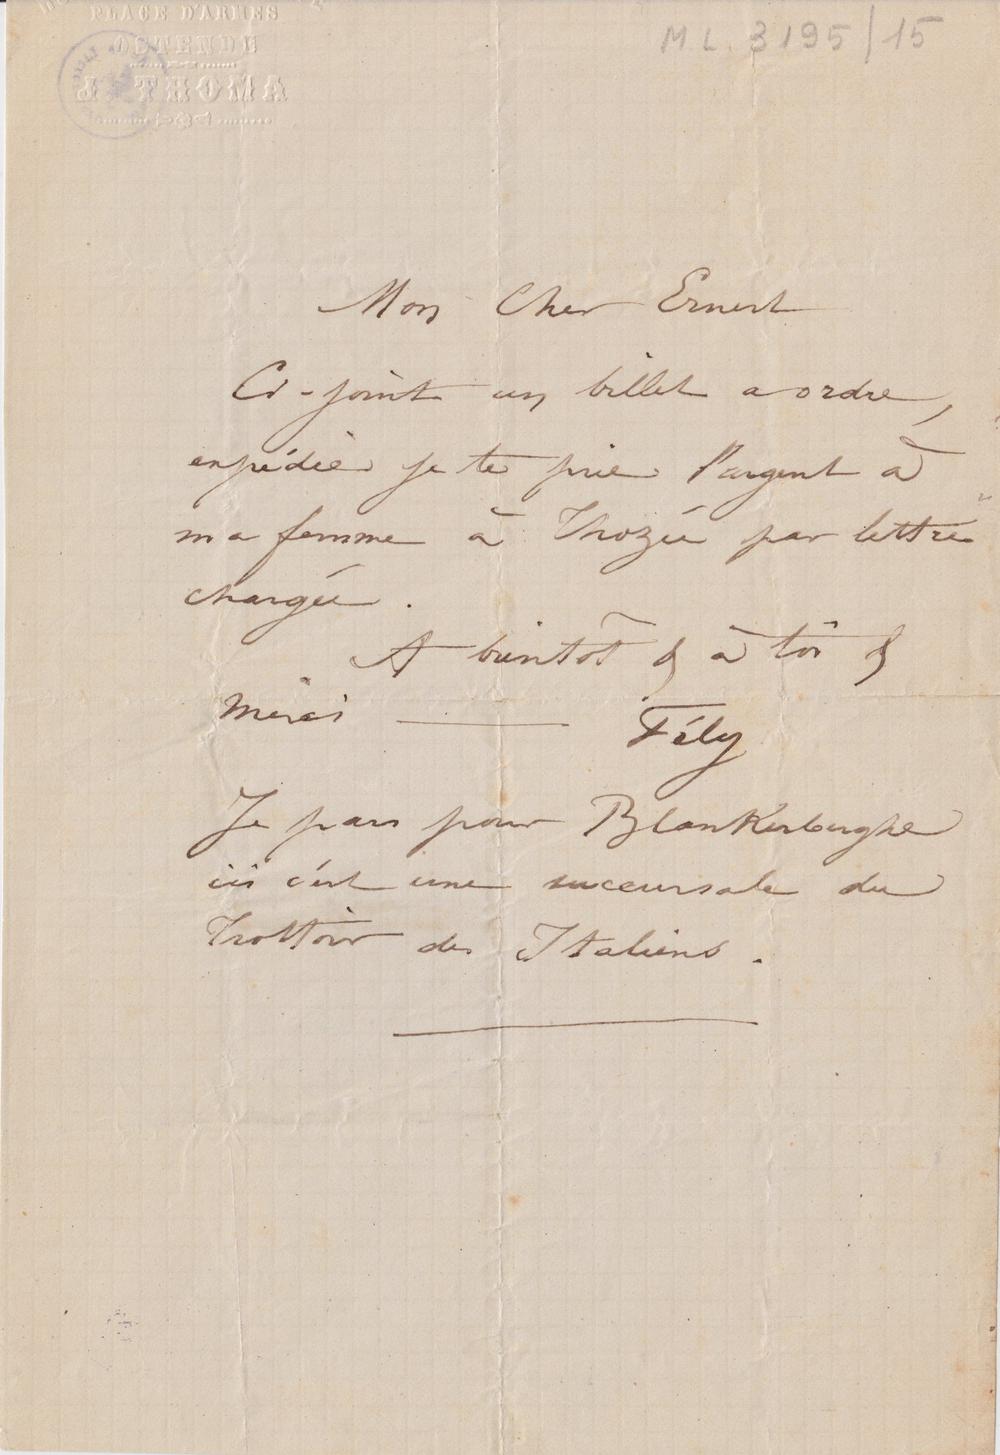 PLACE D'ARMES
OSTENDE
J. THOMA
M.L. 3195/15
Mon Cher Ernest
Ci-joint un billet a ordre,
expédie je te prie l'argent à
ma femme à Thozée par lettre
chargée.
A bientôt & à toi &
merci — Fély
Je pars pour Blankerberghe
ici c'est une succursale du
Trottoir des Italiens.